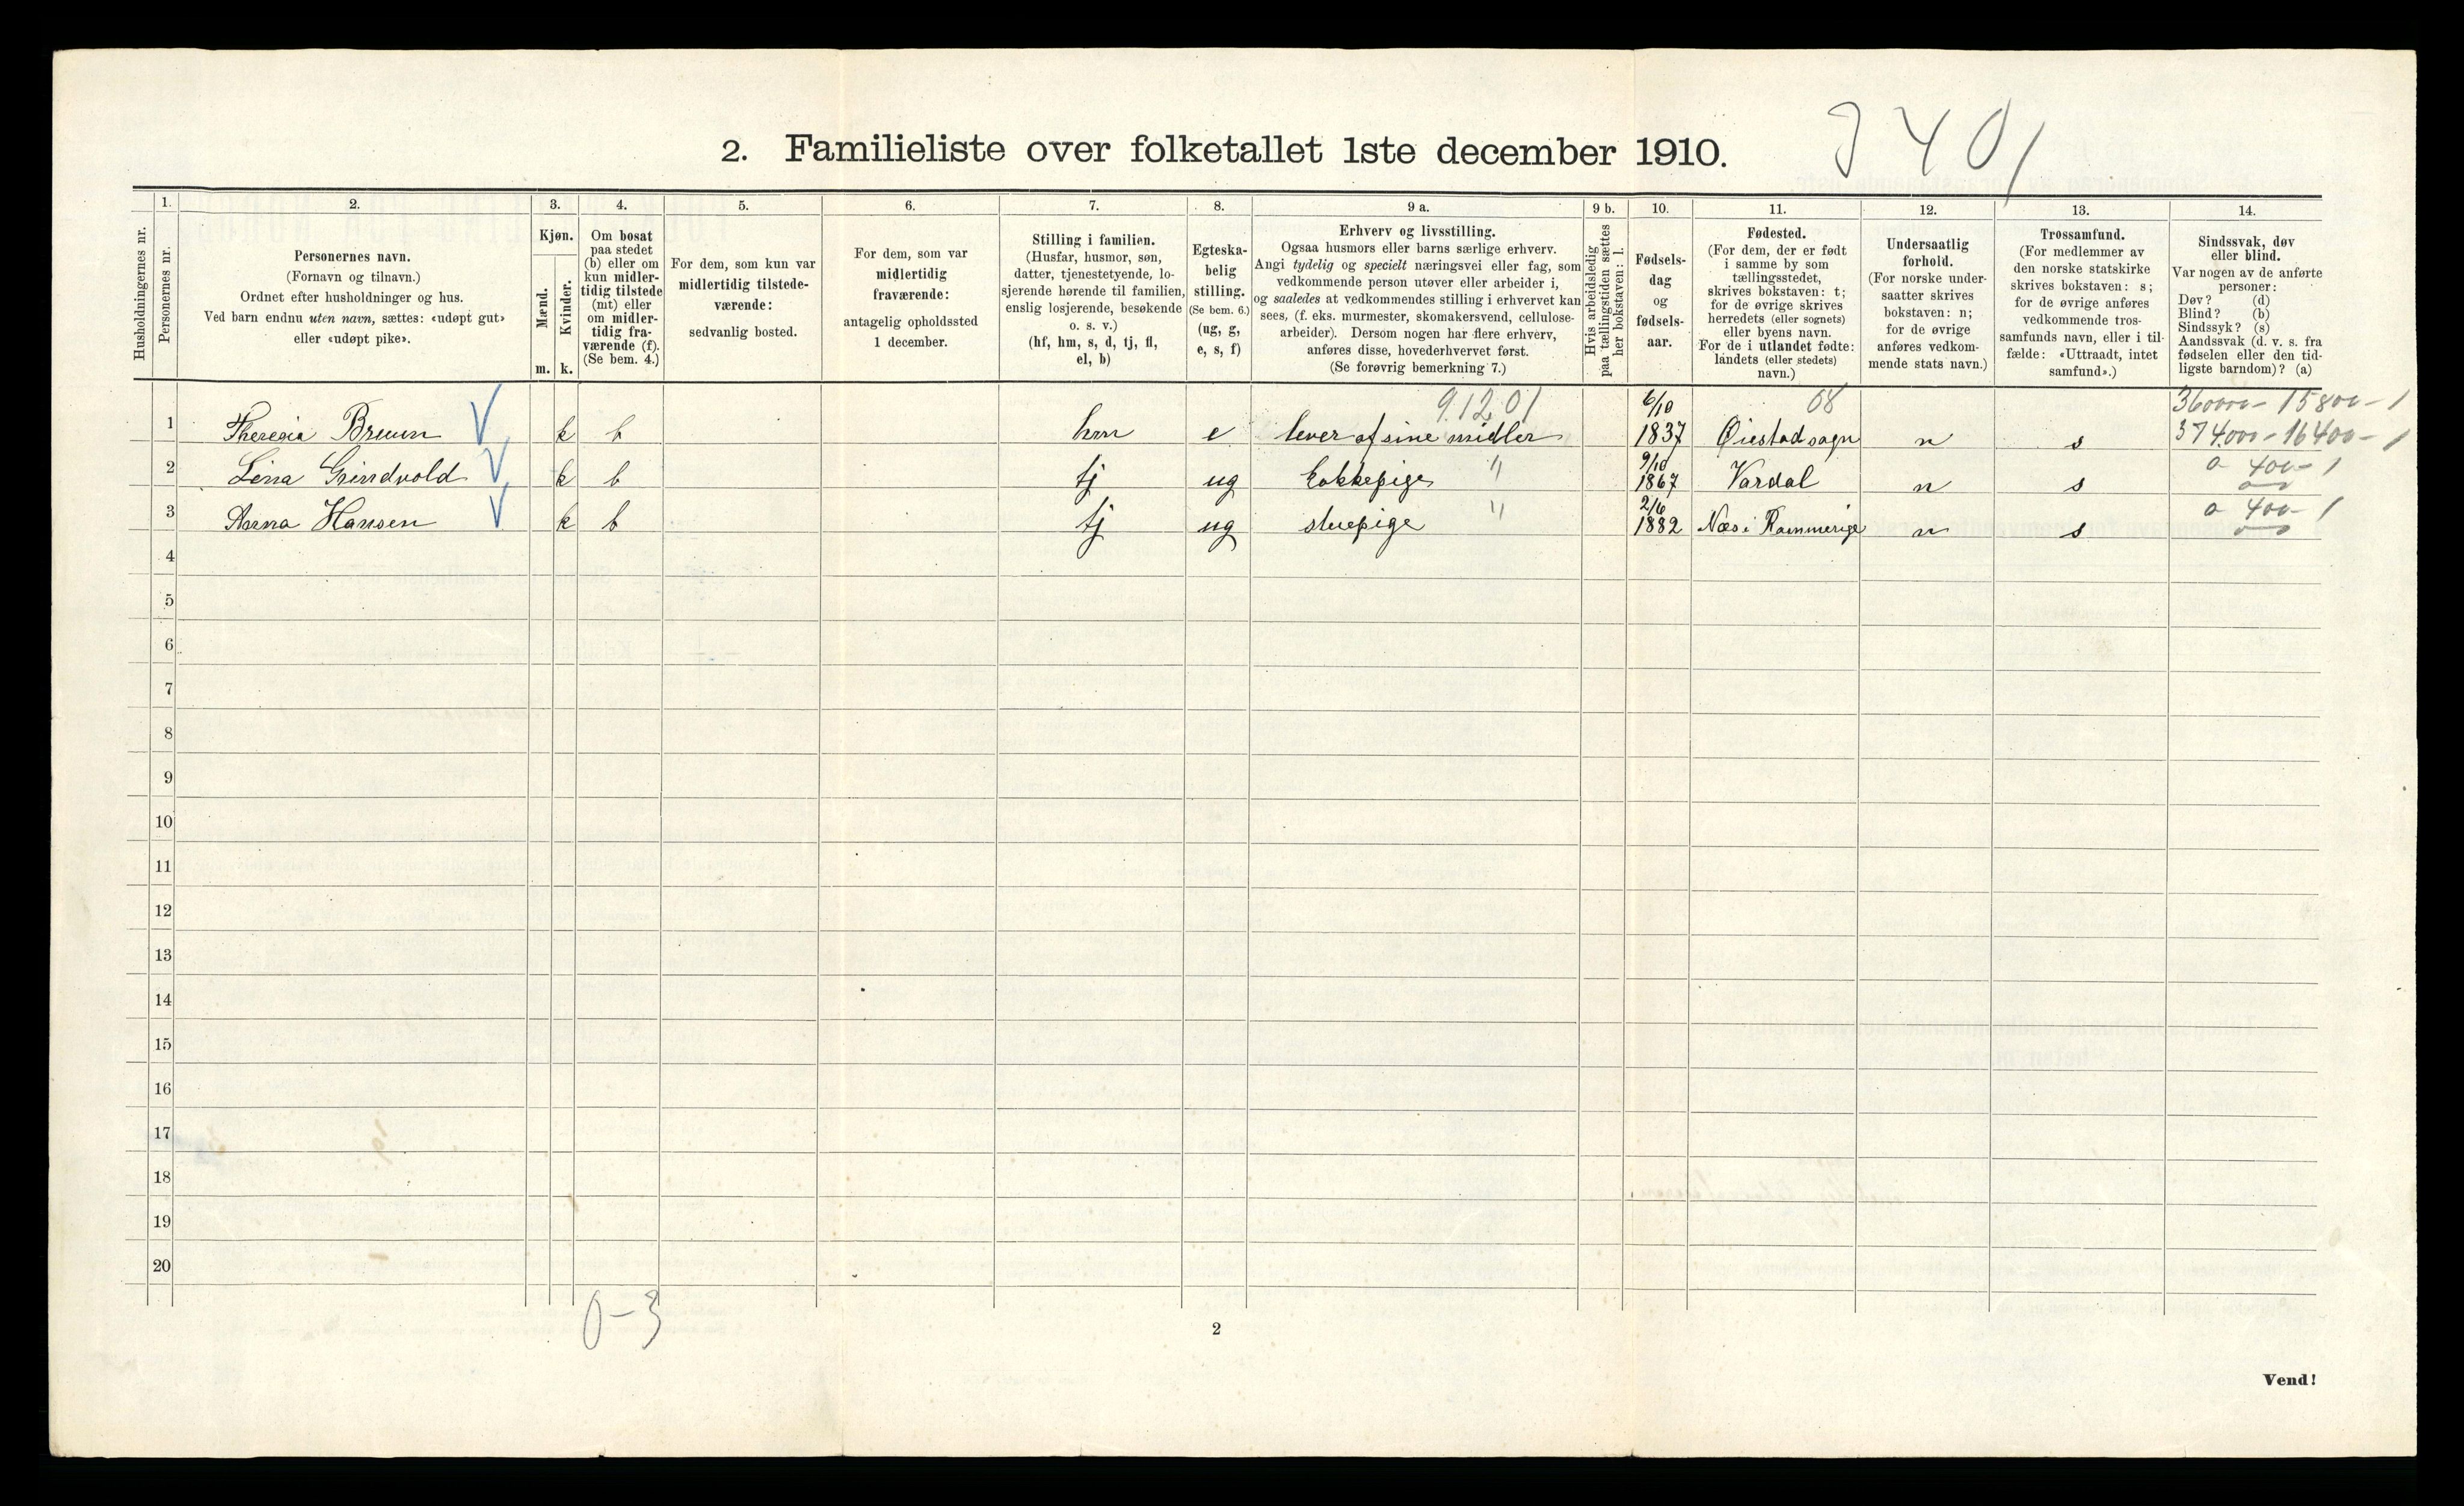 2. Familieliste over folketallet 1ste december 1910.
Husholdningernes nr.
1.
Personernes nr.
2.
Personernes navn.
(Fornavn og tilnavn.)
Ordnet efter husholdninger og hus.
Ved barn endnu uten navn, sættes: «udøpt gut»
eller «udøpt pike».
3.
Kjøn.
Mænd.
Kvinder.
m.
k.
4.
Om bosat
paa stedet
(b) eller om
kun midler-
tidig tilstede
(mt) eller
om midler-
tidig fra-
værende (f).
(Se bem. 4.)
5.
For dem, som kun var
midlertidig tilstede-
værende:
sedvanlig bosted.
6.
For dem, som var
midlertidig
fraværende:
antagelig opholdssted
1 december.
7.
Stilling i familien.
(Husfar, husmor, søn,
datter, tjenestetyende, lo-
sjerende hørende til familien,
enslig losjerende, besøkende
o. s. v.)
(hf, hm, s, d, tj, fl,
el, b)
8.
Egteska-
belig
stilling.
(Se bem. 6.)
(ug, g,
e, s, f)
9 a.
Erhverv og livsstilling.
Ogsaa husmors eller barns særlige erhverv.
Angi tydelig og specielt næringsvei eller fag, som
vedkommende person utøver eller arbeider i,
og saaledes at vedkommendes stilling i erhvervet kan
sees, (f. eks. murmester, skomakersvend, cellulose-
arbeider). Dersom nogen har flere erhverv,
anføres disse, hovederhvervet først.
(Se forøvrig bemerkning 7.)
9 b.
Hvis arbeidsledig
paa tællingstiden sættes
her bokstaven: l.
10.
Fødsels-
dag
og
fødsels-
aar.
11.
Fødested.
(For dem, der er født
i samme by som
tællingsstedet,
skrives bokstaven: t;
for de øvrige skrives
herredets (eller sognets)
eller byens navn.
For de i utlandet fødte:
landets (eller stedets)
navn.)
12.
Undersaatlig
forhold.
(For norske under-
saatter skrives
bokstaven: n;
for de øvrige
anføres vedkom-
mende stats navn.)
13.
Trossamfund.
(For medlemmer av
den norske statskirke
skrives bokstaven: s;
for de øvrige anføres
vedkommende tros-
samfunds navn, eller i til-
fælde: «Uttraadt, intet
samfund».)
14.
Sindssvak, døv
eller blind.
Var nogen av de anførte
personer:
Døv? (d)
Blind? (b)
Sindssyk? (s)
Aandssvak (d. v. s. fra
fødselen eller den tid-
ligste barndom)? (a)
9.12.01 6/10 08 360000- 15800- 1
1 Theresia Bruun V k b hm e lever af sine midler 1837 Øiestad sogn n s 374.000 - 16400- 1
2 Lina Grindvold V k b tj ug kokkepige " 9/10 1867 Vardal n s 0 400- 1
3 Anna Hansen V k b tj ug stuepige " 2/6 1882 Næs i Rommerige n s 0 400- 1
4
5
6
7
8
9
10
11
12
13
14
15
16
17
18
19
20
0-3
2
Vend!